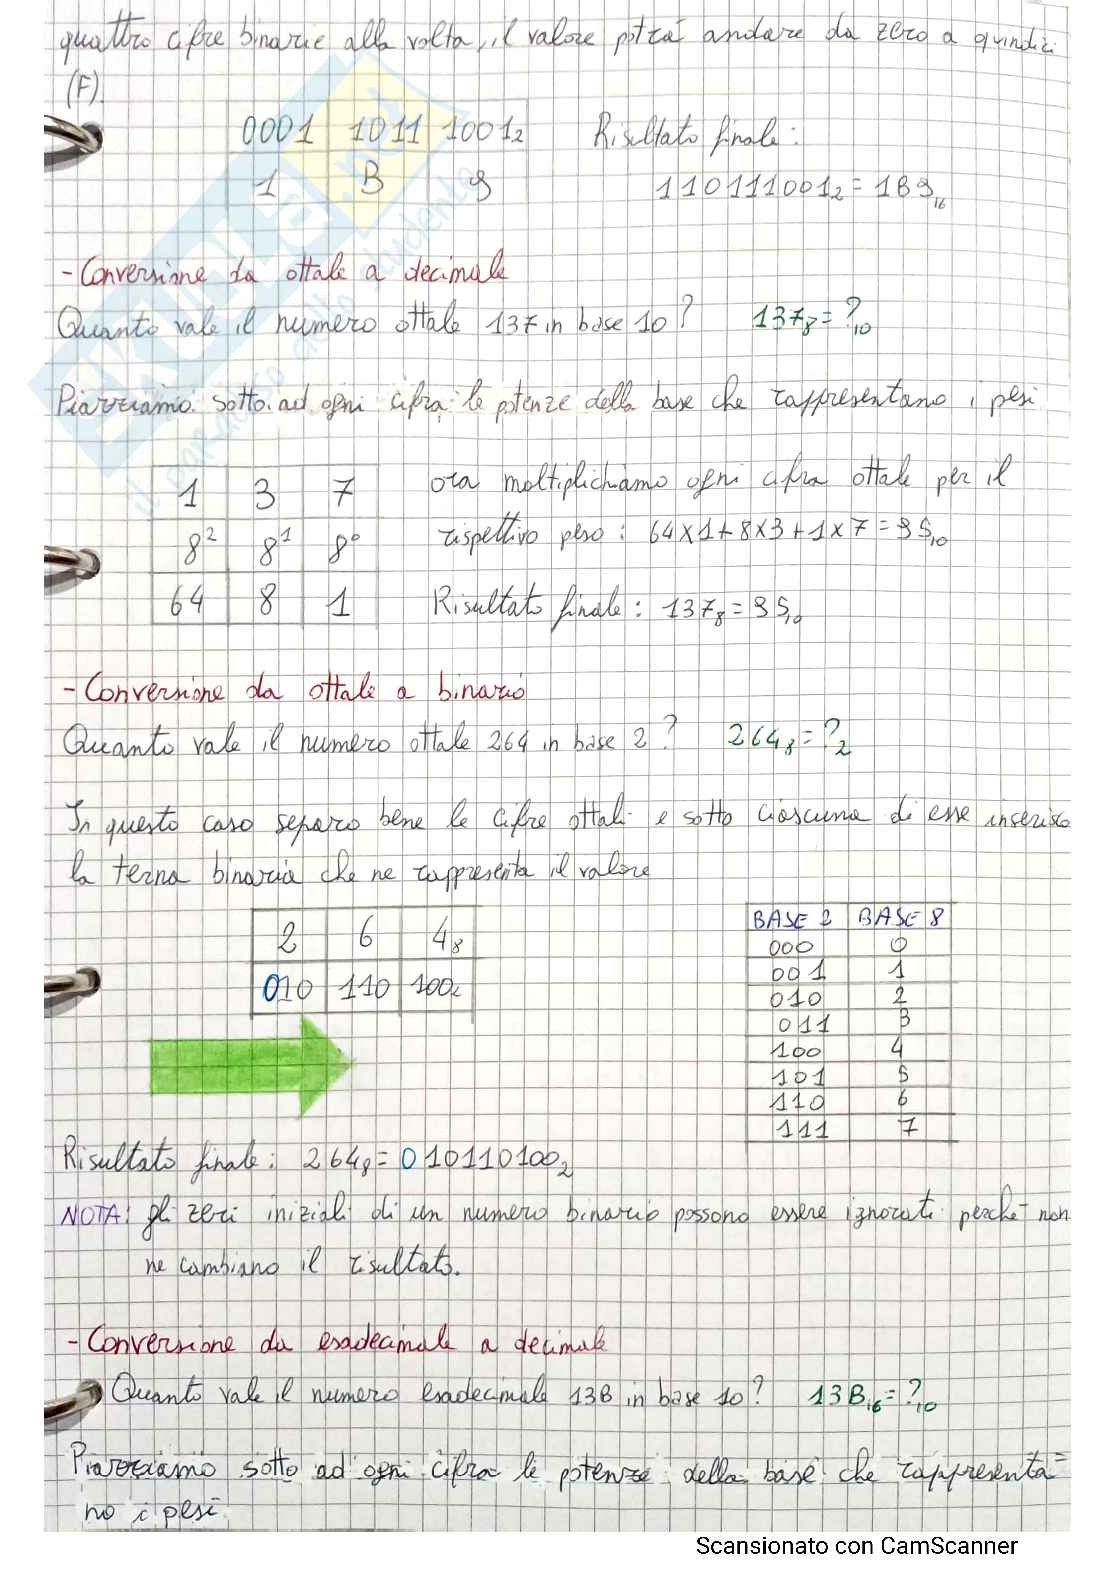 quattro cifre binarie alla volta, il valore potrà andare da zero a quindici
(F).
0001 1011 1001₂ Risultato finale:
1 B 9 110111001₂ = 1B9₁₆
- Conversione da ottale a decimale
Quanto vale il numero ottale 137 in base 10? 137₈ = ?₁₀
Piazziamo sotto ad ogni cifra le potenze della base che rappresentano i pesi
1 3 7 ora moltiplichiamo ogni cifra ottale per il
8² 8¹ 8⁰ rispettivo peso: 64×1+8×3+1×7 = 95₁₀
64 8 1 Risultato finale: 137₈ = 95₁₀
- Conversione da ottale a binario
Quanto vale il numero ottale 264 in base 2? 264₈ = ?₂
In questo caso separo bene le cifre ottali e sotto ciascuna di esse inserisco
la terna binaria che ne rappresenta il valore
2 6 4₈
010 110 100₂
BASE 2 BASE 8
000 0
001 1
010 2
011 3
100 4
101 5
110 6
111 7
Risultato finale: 264₈ = 010110100₂
NOTA: gli zeri iniziali di un numero binario possono essere ignorati perché non
ne cambiano il risultato.
- Conversione da esadecimale a decimale
Quanto vale il numero esadecimale 13B in base 10? 13B₁₆ = ?₁₀
Piazziamo sotto ad ogni cifra le potenze della base che rappresenta=
no i pesi.
Scansionato con CamScanner
SKUOLA.net
il paradiso dello studente